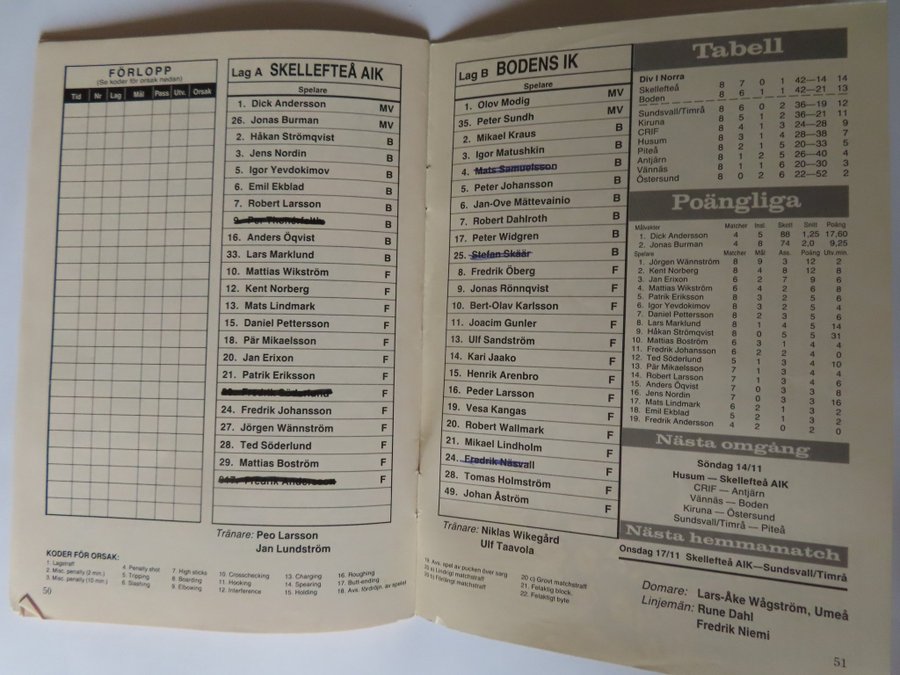 FÖRLOPP
(Se koder för orsak nedan)
Tid Nr Lag Mål Pass Utv. Orsak
Lag A SKELLEFTEÅ AIK
Spelare
1. Dick Andersson MV
26. Jonas Burman MV
2. Håkan Strömqvist B
3. Jens Nordin B
5. Igor Yevdokimov B
6. Emil Ekblad B
7. Robert Larsson B
16. Anders Öqvist B
33. Lars Marklund B
10. Mattias Wikström F
12. Kent Norberg F
13. Mats Lindmark F
15. Daniel Pettersson F
18. Pär Mikaelsson F
20. Jan Erixon F
21. Patrik Eriksson F
24. Fredrik Johansson F
27. Jörgen Wännström F
28. Ted Söderlund F
29. Mattias Boström F
Fredrik Andersson
Tränare: Peo Larsson
Jan Lundström
KODER FÖR ORSAK:
1. Lagstraff
2. Misc. penalty (2 min.)
3. Misc. penalty (10 min.)
4. Penalty shot
5. Tripping
6. Slashing
7. High sticks
8. Boarding
9. Elbowing
10. Crosschecking
11. Hooking
12. Interference
13. Charging
14. Spearing
15. Holding
16. Roughing
17. Butt-ending
18. Avs. fördröjn. av spelet
50
Lag B BODENS IK
Spelare
1. Olov Modig MV
35. Peter Sundh MV
2. Mikael Kraus B
3. Igor Matushkin B
4. Mats Samuelsson B
5. Peter Johansson B
6. Jan-Ove Mättevainio B
7. Robert Dahlroth B
17. Peter Widgren B
25. Stefan Skäär B
8. Fredrik Öberg F
9. Jonas Rönnqvist F
10. Bert-Olav Karlsson F
11. Joacim Gunler F
13. Ulf Sandström F
14. Kari Jaako F
15. Henrik Arenbro F
16. Peder Larsson F
19. Vesa Kangas F
20. Robert Wallmark F
21. Mikael Lindholm F
24. Fredrik Näsvall F
28. Tomas Holmström F
49. Johan Åström F
Tränare: Niklas Wikegård
Ulf Taavola
19. Avs. spel av pucken över sarg
20 c) Grovt matchstraff
21. Felaktig block.
22. Felaktigt byte
Tabell
Div I Norra
Skellefteå 8 7 0 1 42—14 14
Boden 8 6 1 1 42—21 13
Sundsvall/Timrå 8 6 0 2 36—19 12
Kiruna 8 5 1 2 36—21 11
CRIF 8 4 1 3 24—28 9
Husum 8 3 1 4 28—38 7
Piteå 8 2 1 5 20—33 5
Antjärn 8 1 2 5 26—40 4
Vännäs 8 1 1 6 20—30 3
Östersund 8 0 2 6 22—52 2
Poängliga
Målvakter Matcher Insl. Skott Snitt Poäng
1. Dick Andersson 4 5 88 1,25 17,60
2. Jonas Burman 4 8 74 2,0 9,25
Spelare Matcher Mål Ass. Poäng Utv.min.
1. Jörgen Wännström 8 9 3 12 2
2. Kent Norberg 8 4 8 12 8
3. Jan Erixon 6 2 7 9 6
4. Mattias Wikström 6 4 2 6 8
5. Patrik Eriksson 8 3 2 5 6
6. Igor Yevdokimov 8 3 2 5 4
7. Daniel Pettersson 8 2 3 5 6
8. Lars Marklund 8 1 4 5 14
9. Håkan Strömqvist 8 0 5 5 31
10. Mattias Boström 6 3 1 4 4
11. Fredrik Johansson 6 2 2 4 0
12. Ted Söderlund 5 1 3 4 10
13. Pär Mikaelsson 7 1 3 4 4
14. Robert Larsson 7 1 3 4 6
15. Anders Öqvist 7 0 3 3 8
16. Jens Nordin 7 0 3 3 16
17. Mats Lindmark 6 2 1 3 2
18. Emil Ekblad 5 2 1 3 2
19. Fredrik Andersson 4 2 0 2 0
Nästa omgång
Söndag 14/11
Husum — Skellefteå AIK
CRIF — Antjärn
Vännäs — Boden
Kiruna — Östersund
Sundsvall/Timrå — Piteå
Nästa hemmamatch
Onsdag 17/11 Skellefteå AIK—Sundsvall/Timrå
Domare: Lars-Åke Wågström, Umeå
Linjemän: Rune Dahl
Fredrik Niemi
51